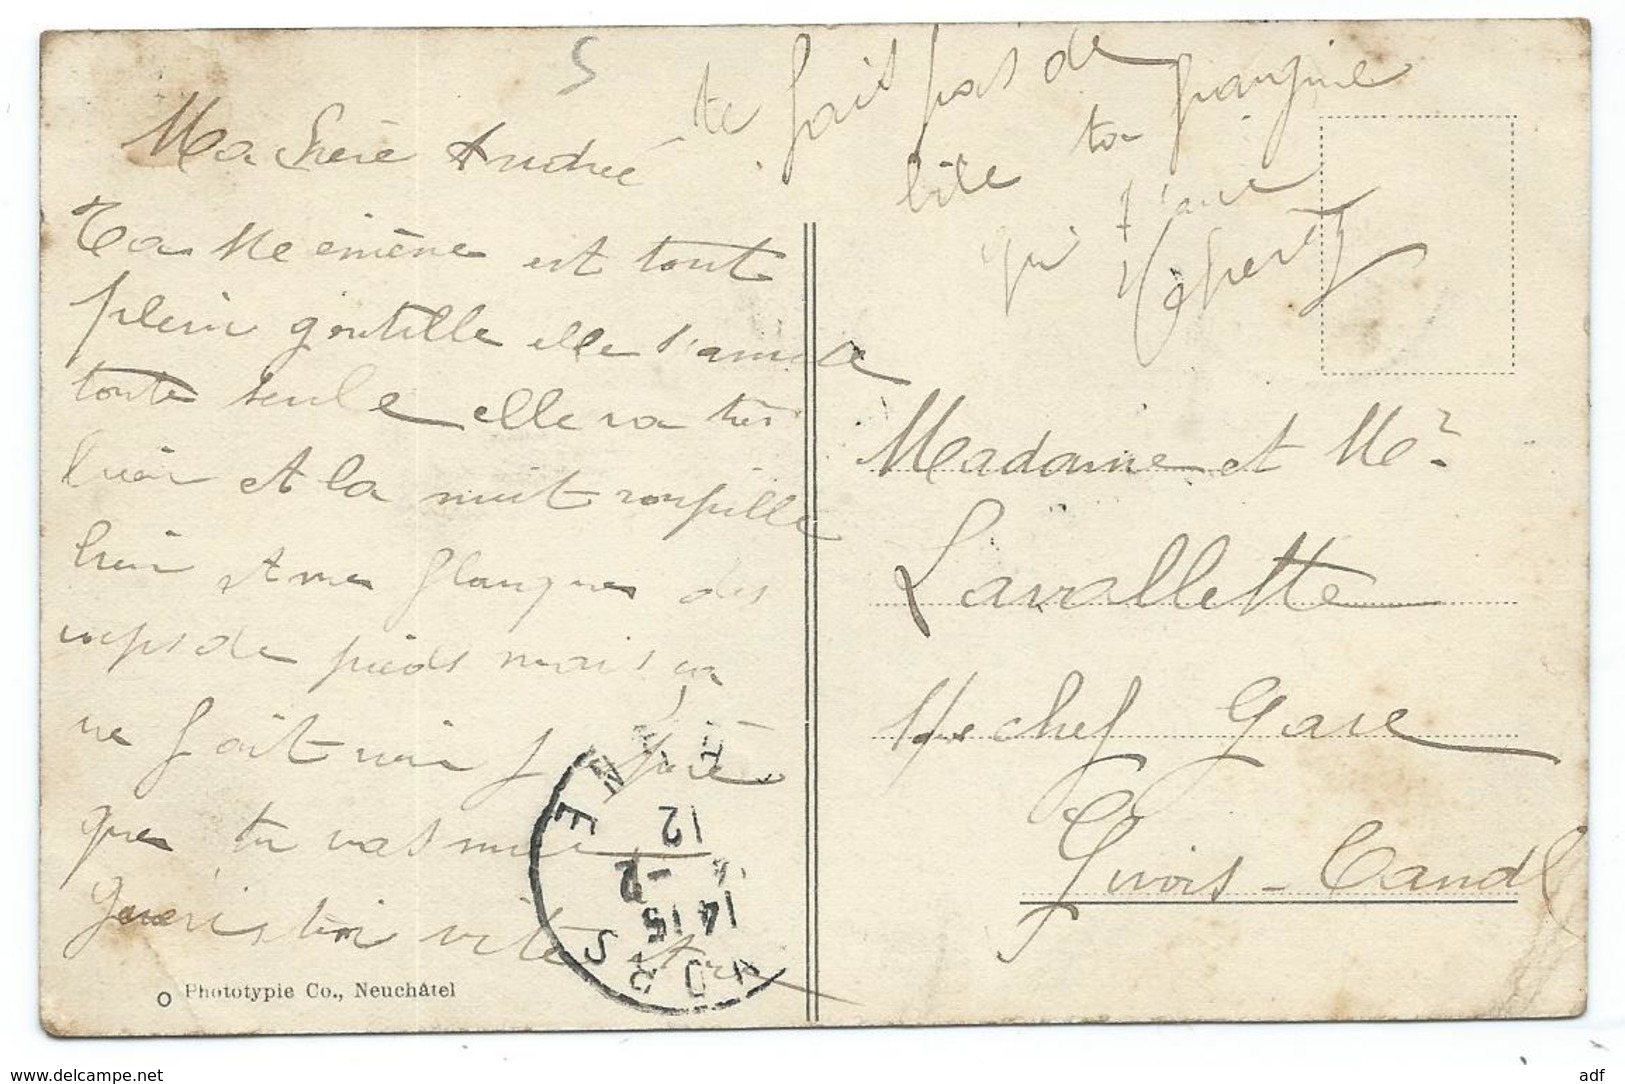 Ma Chère Andrée
Ta Memémère est tout
plein gentille elle s'amuse
toute seule elle va très
bien et la nuit roupille
bien et me flanque des
coups de pieds mais ça
ne fait rien j'espère
que tu vas mieux
guéris toi vite et ne
te fais pas de
bile ta frangine
qui t'aime
5
Madame et Mr
Lavallette
chef Gare
Givors - Canal
VORS
14 15
-2
12
Phototypie Co., Neuchâtel
delcampe.net
adf